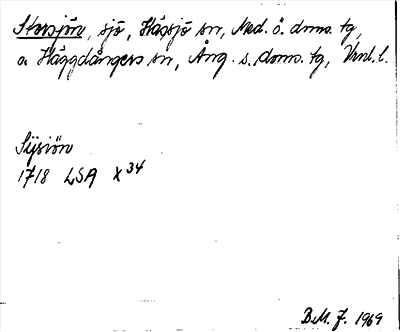 Storsjön, sjö, Hässjö sn, Med. ö. doms. tg,
o. Häggdångers sn, Ång. s. doms. tg, Vrnl. l.
Sijsiön
1718 LSA X³⁴
B.M. J. 1969